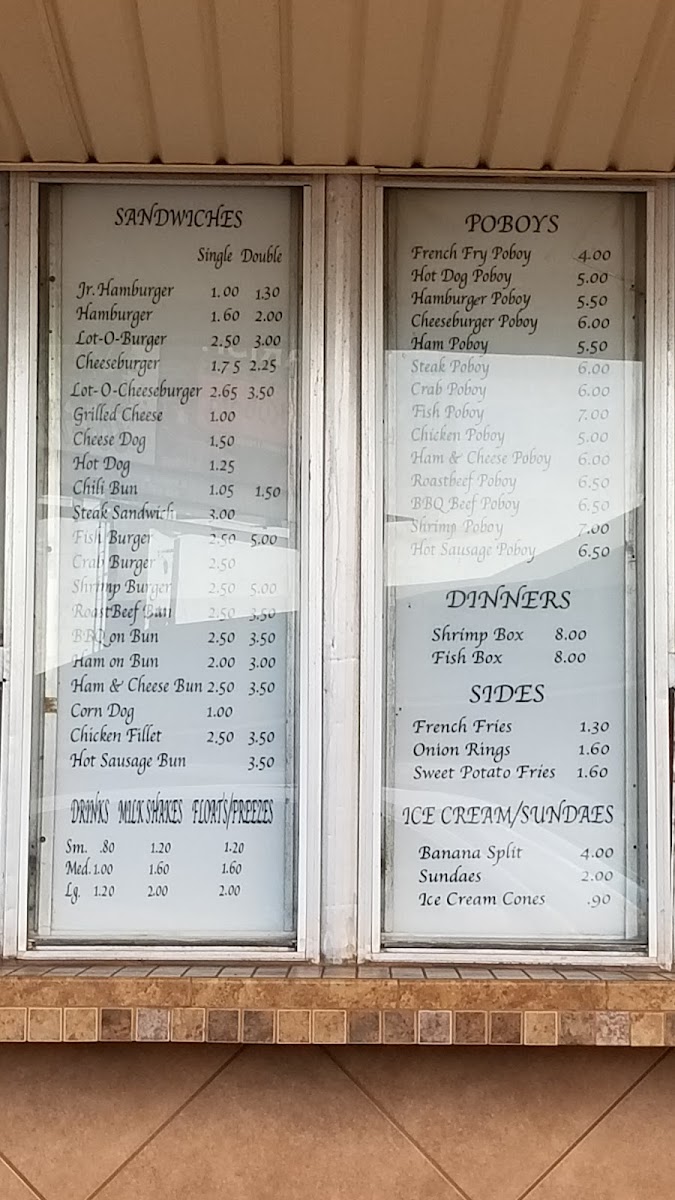 SANDWICHES
Single Double
Jr. Hamburger 1.00 1.30
Hamburger 1.60 2.00
Lot-O-Burger 2.50 3.00
Cheeseburger 1.75 2.25
Lot-O-Cheeseburger 2.65 3.50
Grilled Cheese 1.00
Cheese Dog 1.50
Hot Dog 1.25
Chili Bun 1.05 1.50
Steak Sandwich 3.00
Fish Burger 2.50 5.00
Crab Burger 2.50
Shrimp Burger 2.50 5.00
RoastBeef Bun 2.50 3.50
BBQ on Bun 2.50 3.50
Ham on Bun 2.00 3.00
Ham & Cheese Bun 2.50 3.50
Corn Dog 1.00
Chicken Fillet 2.50 3.50
Hot Sausage Bun 3.50
DRINKS MILKSHAKES FLOATS/FREEZES
Sm. .80 1.20 1.20
Med. 1.00 1.60 1.60
Lg. 1.20 2.00 2.00
POBOYS
French Fry Poboy 4.00
Hot Dog Poboy 5.00
Hamburger Poboy 5.50
Cheeseburger Poboy 6.00
Ham Poboy 5.50
Steak Poboy 6.00
Crab Poboy 6.00
Fish Poboy 7.00
Chicken Poboy 5.00
Ham & Cheese Poboy 6.00
Roastbeef Poboy 6.50
BBQ Beef Poboy 6.50
Shrimp Poboy 7.00
Hot Sausage Poboy 6.50
DINNERS
Shrimp Box 8.00
Fish Box 8.00
SIDES
French Fries 1.30
Onion Rings 1.60
Sweet Potato Fries 1.60
ICE CREAM/SUNDAES
Banana Split 4.00
Sundaes 2.00
Ice Cream Cones .90